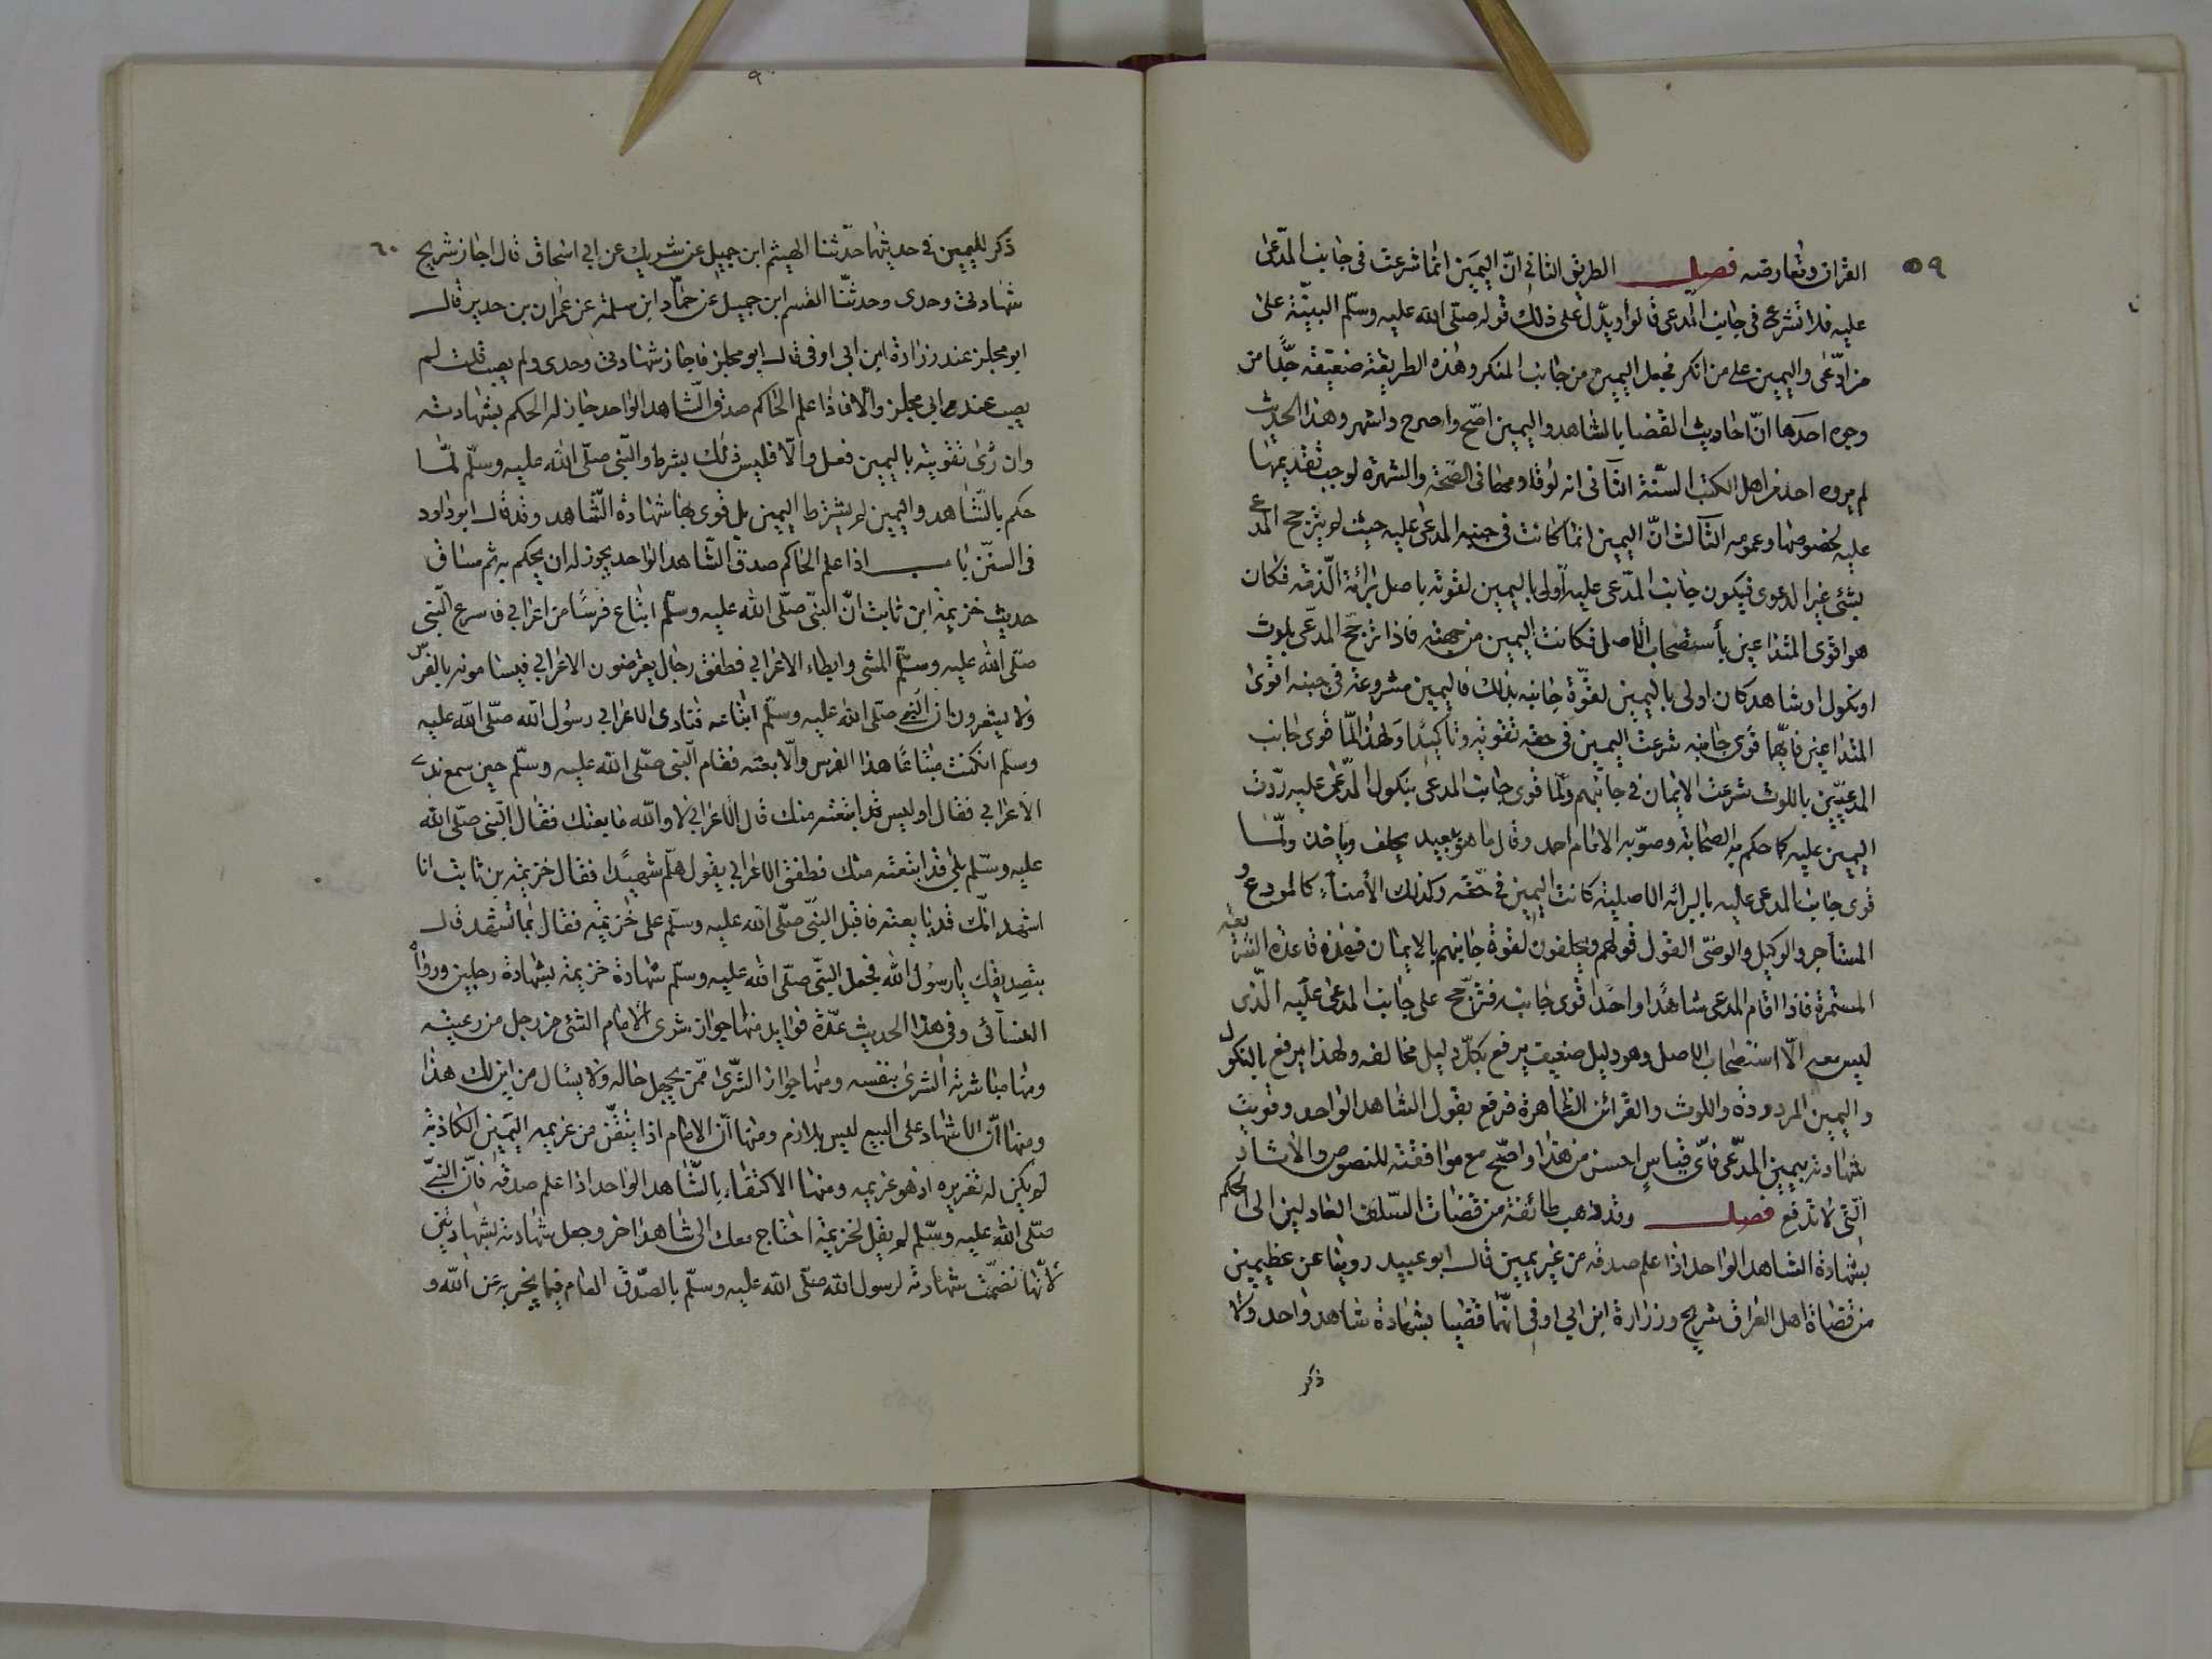 ٥٩
القران وتعارضه فصل الطريق الثاني انّ اليمين انما شرعت في جانب المدّعى
عليه فلا تشرع في جانب المدعى قالوا ويدّل على ذلك قوله صلّى الله عليه وسلّم البيّنة على
من ادّعى واليمين على من انكر فجعل اليمين من جانب المنكر وهذه الطريقة ضعيفة جدًّا من
وجوه احدها انّ احاديث القضا بالشاهد واليمين اصّح واصرح واشهر وهذا الحديث
لم يروه احد من اهل الكتب السّتة الثاني انه لو قاومها في الصّحة والشهرة لوجب تقديمها
عليه لخصوصها وعمومه الثالث انّ اليمين انما كانت في جنبه المدعى عليه حيث لم يترجح المدعى
بشئ غير الدعوى فيكون جانب المدّعى عليه أولى باليمين لقوته باصل برائة الذمّة فكان
هو اقوى المتداعين بأستصحاب الأصل فكانت اليمين من جهته فاذا ترجّح المدّعى بلوث
او نكول او شاهد كان اولى باليمين لقوّة جانبه بذلك فاليمين مشروعة في جنبه اقوى
المتداعين فايّهما قوى جانبه شرعت اليمين في حقه تقوية وتاكيدًا ولهذا لمّا قوى جانب
المدعيّين باللوث شرعت الايمان في جانبهم ولمّا قوى جانب المدعى بنكول المدّعى عليه ردّت
اليمين عليه كما حكم به الصحابة وصوّبه الامام احمد وقال ما هو ببعيد يحلف وياخذ ولمّا
قوى جانب المدعى عليه بالبرائه الاصلية كانت اليمين في حقّه وكذلك الأمناء كالمودع و
المستأجر والوكيل والوصّى القول قولهم ويحلفون لقوة جانبهم بالايمان فهذه قاعدة الشريعة
المستمرة فاذا اقام المدعى شاهدًا واحدًا قوى جانبه فترجّح على جانب المدعى عليه الذى
ليس معه الّا استصحاب الاصل وهو دليل ضعيف يرفع بكلّ دليل مخالفه ولهذا يرفع بالنكول
واليمين المردودة واللوث والقرائن الظاهرة فرفع بقول الشاهد الواحد وقويت
شهادته بيمين المدّعى فأىّ قياس احسن من هذا واصّح مع موافقته للنصوص والأثار
الّتى لا تدفع فصل وقد ذهب طائفة من قضات السّلف العادلين الى الحكم
بشهادة الشاهد الواحد اذا علم صدقه من غير يمين قال ابو عبيد روينا عن عظيمين
من قضاة اهل العراق شريح وزرارة ابن ابي اوفى انّهما قضيا بشهادة شاهد واحد ولا
ذكر
٦٠
ذكر لليمين في حديثهما حدّثنا الهيثم ابن جميل عن شريك عن ابي اسحاق قال اجاز شريح
شهادتى وحدى وحدثّنا القسم ابن جميل عن حمّاد ابن سلمة عن عمران بن حدير قال
ابو مجلز عند زرارة ابن ابي اوفى قال ابو مجلز فاجاز شهادتى وحدى ولم يصب قلت لم
يصب عند ابي مجلز والّا فاذا علم الحاكم صدق الشاهد الواحد جاز له الحكم بشهادته
وان رأى تقويته باليمين فعل والّا فليس ذلك بشرط والنّبى صلّى الله عليه وسلّم لمّا
حكم بالشّاهد واليمين لم يشترط اليمين بل قوى بها شهادة الشّاهد وقد قال ابو داود
في السنن باب اذا علم الحاكم صدق الشّاهد الواحد يجوز له ان يحكم به ثم ساق
حديث خزيمة ابن ثابت انّ النبّى صلّى الله عليه وسلّم ابتاع فرسًا من اعرابي فاسرع النّبى
صلّى الله عليه وسلّم المشى وابطاء الاعرابي فطفق رجال يعترضون الاعرابي فيساومونه بالفرس
ولا يشعرون انّ النّبى صلّى الله عليه وسلّم ابتاعه فنادى الاعرابي رسُول الله صلّى الله عليه
وسلّم ان كنت مبتاعًا هذا الفرس والّا بعته فقام النّبى صلّى الله عليه وسلّم حين سمع نداء
الاعرابي فقال او ليس قد ابتعته منك قال الاعرابي لا والله ما بعتك فقال النّبى صلّى الله
عليه وسلّم بلى قد ابتعته منك فطفق الاعرابي يقول هلّم شهيدًا فقال خزيمة بن ثابت انا
اشهد انّك قد بايعته فاقبل النبّى صلّى الله عليه وسلّم على خزيمة فقال بما تشهد قال
بتصديقك يا رسُول الله فجعل النبّى صلّى الله عليه وسلّم شهادة خزيمة بشهادة رجلين ورواه
النسآئى وفى هذا الحديث عدّة فوايد منها جواز شرى الامام الشئ من رجل من رعيته
ومنها مباشرته الشرى بنفسه ومنها جواز الشّرى ممّن يجهل حاله ولا يسأل من اين لك هذا
ومنها انّ الاشهاد على البيع ليس بلازم ومنها انّ الامام اذا يتقّن من غريمه اليمين الكاذبة
لم يكن له تعزيره اذ هو غريمه ومنها الاكتفاء بالشّاهد الواحد اذا علم صدقه فانّ النبّى
صلّى الله عليه وسلّم لم يقل لخزيمة احتاج معك الى شاهد اخر وجعل شهادته بشهادتين
لانّها تضمّنت شهادته لرسول الله صلّى الله عليه وسلّم بالصّدق العام فيما يخبر به عن الله و